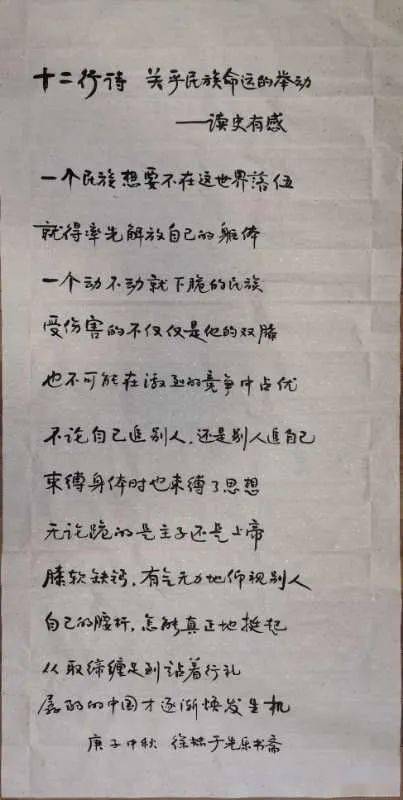 十二行诗 关乎民族命运的举动
——读史有感
一个民族想要不在这世界落伍
就得率先解放自己的躯体
一个动不动就下跪的民族
受伤害的不仅仅是他的双膝
也不可能在激烈的竞争中占优
不论自己追别人,还是别人追自己
束缚身体时也束缚了思想
无论跪的是主子还是上帝
膝软缺钙,有气无力地仰视别人
自己的腰杆,怎能真正地挺起
从取缔缠足到站着行礼
孱弱的中国才逐渐焕发生机
庚子中秋 徐 于 乐书斋